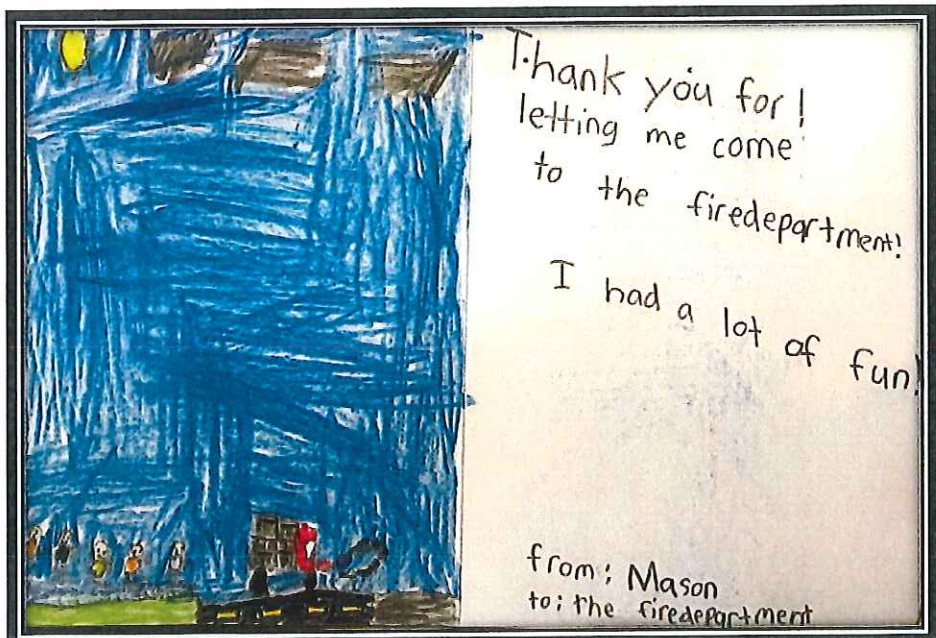 Thank you for!
letting me come
to the firedepartment!
I had a lot of fun!
from: Mason
to: the firedepartment